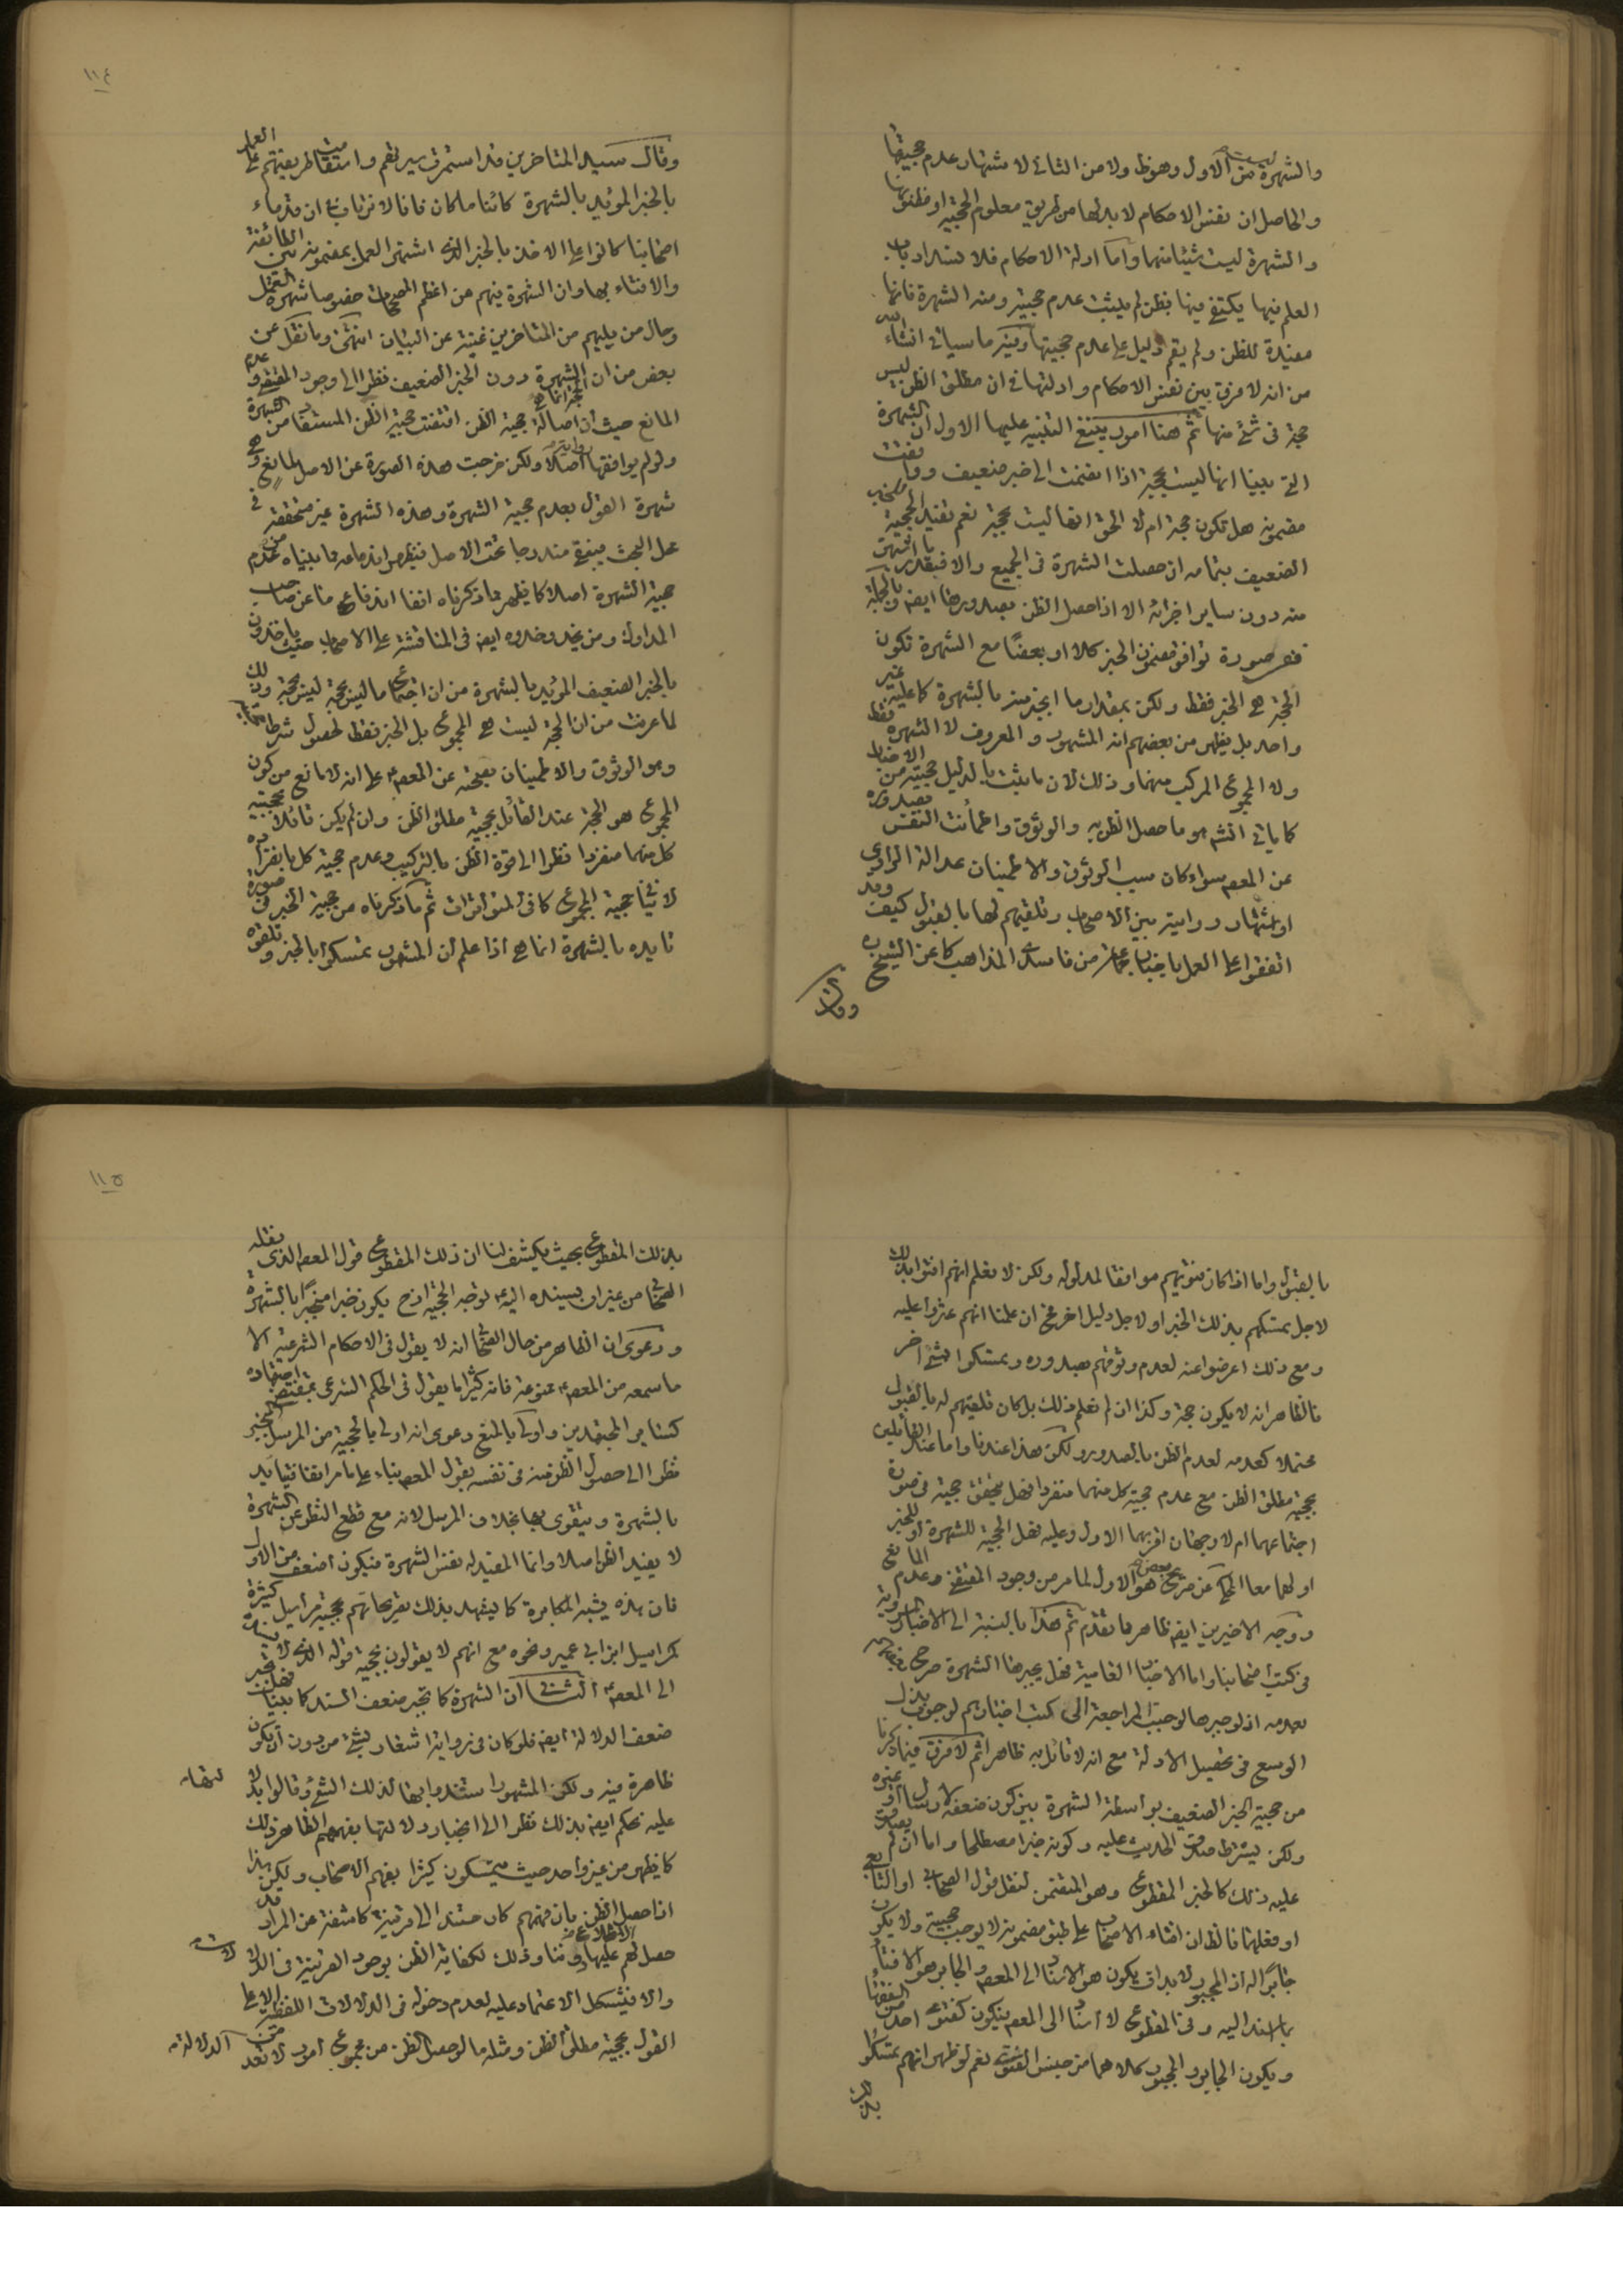 والشهرة ليست من الاول وهو ظ ولا من الثاني لاشتهار عدم حجيتها
والحاصل ان نفس الاحكام لا بد لها من طريق معلوم الحجية او مظنونها
والشهرة ليست شيئا منهما واما ادلة الاحكام فلا نسداد باب
العلم فيها يكتفي فيها بظن لم يثبت عدم حجيته ومنه الشهرة فانها
مفيدة للظن ولم يقم دليل على عدم حجيتها وفيه ما سياتي انشاء الله
من انه لا فرق بين نفس الاحكام وادلتها في ان مطلق الظن ليس
حجة في شئ منها ثم هنا امور ينبغي التنبيه عليها الاول ان الشهرة
التي بينا انها ليست بحجة اذا انضمت الى خبر ضعيف ووافقت
مضمونه هل تكون حجة ام لا الحق انها ليست بحجة نعم تفيد الحجية للخبر
الضعيف بتمامه ان حصلت الشهرة في الجميع والا فبقدر ما اشتهر
منه دون ساير اجزائه الا اذا حصل الظن بصدورها ايضا وبالجملة
ففي صورة توافق مضمون الخبر كلا او بعضا مع الشهرة تكون
الحجة هي الخبر فقط ولكن بمقدار ما انجبر منه بالشهرة كما عليه غير
واحد بل يظهر من بعضهم انه المشهور والمعروف لا الشهرة فقط
ولا المجموع المركب منهما وذلك لان ما يثبت بالدليل حجيته من الاخبار
كما ياتي انشم هو ما حصل الظن به والوثوق واطمأنت النفس بصدوره
عن المعصوم سواء كان سبب الوثوق والاطمينان عدالة الراوي
او اشتهار روايته بين الاصحاب وتلقيهم لها بالقبول كيف وقد
اتفقوا على العمل باخبار جماعة من فاسدي المذاهب كما عن الشيخ ره
وقال
١١٤
وقال سيد المتاخرين قد استمرت سيرتهم واستقامت طريقتهم على العمل
بالخبر المؤيد بالشهرة كائنا ما كان فانا لا نرتاب في ان قدماء
اصحابنا كانوا على الاخذ بالخبر الذي اشتهر العمل بمضمونه بين الطائفة
والافتاء بها وان الشهرة فيهم من اعظم المصححات خصوصا شهرة العمل
وحال من يليهم من المتاخرين غنية عن البيان انتهى وما نقل عن
بعض من ان الحجة انما هي الشهرة دون الخبر الضعيف نظرا الى وجود المقتضي وعدم
المانع حيث ان اصالة حجية الظن اقتضت حجية الظن المستفاد من الشهرة
ولو لم يوافقها رواية اصلا ولكن خرجت هذه الصورة عن الاصل لمانع وهي
شهرة القول بعدم حجية الشهرة وهذه الشهرة غير متحققة في
محل البحث فيبقى مندرجا تحت الاصل فيظهر اندفاعه مما بيناه من عدم
حجية الشهرة اصلا كما يظهر مما ذكرناه انفا اندفاع ما عن صاحب
المدارك ومن يحذو حذوه ايضا في المناقشة على الاصحاب حيث ياخذون
بالخبر الضعيف المؤيد بالشهرة من ان اجتماع ما ليس بحجة ليس بحجة وذلك
لما عرفت من ان الحجة ليست هي المجموع بل الخبر فقط لحصول شرطها
وهو الوثوق والاطمينان بصحته عن المعصوم على انه لا مانع من كون
المجموع هو الحجة عند القائل بحجية مطلق الظن وان لم يكن قائلا بحجية
كل منهما منفردا نظرا الى قوة الظن بالتركيب وعدم حجية كل بانفراده
لا ينافي حجية المجموع كما في المتواترات ثم ما ذكرناه من حجية الخبر في صورة
تاييده بالشهرة انما هي اذا علم ان المشهور تمسكوا بالخبر وتلقوه
بالقبول واما اذا كان فتويهم موافقا لمدلوله ولكن لا نعلم انهم افتوا بذلك
لاجل تمسكهم بذلك الخبر او لاجل دليل اخر فح ان علمنا انهم عثروا عليه
ومع ذلك اعرضوا عنه لعدم وثوقهم بصدوره وتمسكوا بشئ اخر
فالظاهر انه لا يكون حجة وكذا ان لم نعلم ذلك بل كان تلقيهم له بالقبول
محتملا كعدمه لعدم الظن بالصدور ولكن هذا عندنا واما عند القائلين
بحجية مطلق الظن مع عدم حجية كل منهما منفردا فهل يتحقق حجية في صورة
اجتماعهما ام لا وجهان اقربهما الاول وعليه فهل الحجية للشهرة او للخبر
او لهما معا المحكي عن بعض هو الاول لما مر من وجود المقتضي وعدم المانع
ووجه الاخيرين ايضا ظاهر مما تقدم ثم هذا بالنسبة الى الاخبار المروية
في كتب اصحابنا واما الاخبار العامية فهل يجبرها الشهرة صرح بعضهم
بعدمه اذ لو جبرها لوجب المراجعة الى كتب اخبارهم لوجوب بذل
الوسع في تحصيل الادلة مع انه لا قائل به ظاهرا ثم لا فرق فيما ذكرنا
من حجية الخبر الضعيف بواسطة الشهرة بين كون ضعفه لارسال او غيره
ولكن يشترط صدق الحديث عليه وكونه خبرا مصطلحا واما ان لم يصدق
عليه ذلك كالخبر المقطوع وهو المتضمن لنقل قول الصحابي او التابعي
او فعلهما فالظ ان افتاء الاصحاب على طبق مضمونه لا يوجب حجيته ولا يكون
جابرا له اذ المجبور لا بد ان يكون هو الاسناد الى المعصوم والجابر هو الافتاء
باستناد اليه وفي المقطوع لا اسناد الى المعصوم فيكون كفتوى احد من الفقهاء
ويكون الجابر والمجبور كلاهما من جنس الفتوى نعم لو ظهر انهم تمسكوا
بذلك
١١٥
بذلك المقطوع بحيث يكشف لنا ان ذلك المقطوع قول المعصوم الذي نقله
الصحابي من غير ان يسنده اليه لوجه الحجية اذ ح يكون خبرا منجبرا بالشهرة
ودعوى ان الظاهر من حال الصحابي انه لا يقول في الاحكام الشرعية الا
ما سمعه من المعصوم ممنوعة فانه كثيرا ما يقول في الحكم الشرعي بمقتضى اجتهاده
كسائر المجتهدين واولى بالمنع دعوى انه اولى بالحجية من المرسل المنجبر
نظرا الى حصول الظن منه في نفسه بقول المعصوم بناء على ما مر انفا فيتايد
بالشهرة ويتقوى بها بخلاف المرسل لانه مع قطع النظر عن الشهرة
لا يفيد الظن اصلا وانما المفيد له نفس الشهرة فيكون اضعف من الاول
فان هذه يشبه المكابرة كما يشهد بذلك تصريحاتهم بحجية مراسيل كثيرة
كمراسيل ابن ابي عمير ونحوه مع انهم لا يقولون بحجية قوله الذي لا يسنده
الى المعصوم الثاني ان الشهرة كما تجبر ضعف السند كما بينا فهل تجبر
ضعف الدلالة ايضا فلو كان في رواية اشعار بشئ من دون ان يكون
ظاهرة فيه ولكن المشهور استندوا بها لذلك الشئ وقالوا بدلالتها
عليه نحكم ايضا بذلك نظرا الى انجبار دلالتها بفهمهم الظاهر ذلك
كما يظهر من غير واحد حيث يتمسكون كثيرا بفهم الاصحاب ولكن هذا
اذا حصل الظن بان فهمهم كان مستندا الى قرينة كاشفة عن المراد قد
حصل لهم الاطلاع عليها دوننا وذلك لكفاية الظن بوجود القرينة في الدلالات
والا فيشكل الاعتماد عليه لعدم دخوله في الدلالات اللفظية الا على
القول بحجية مطلق الظن ومثله ما لو حصل الظن من مجموع امور لا تعد من الدلالة